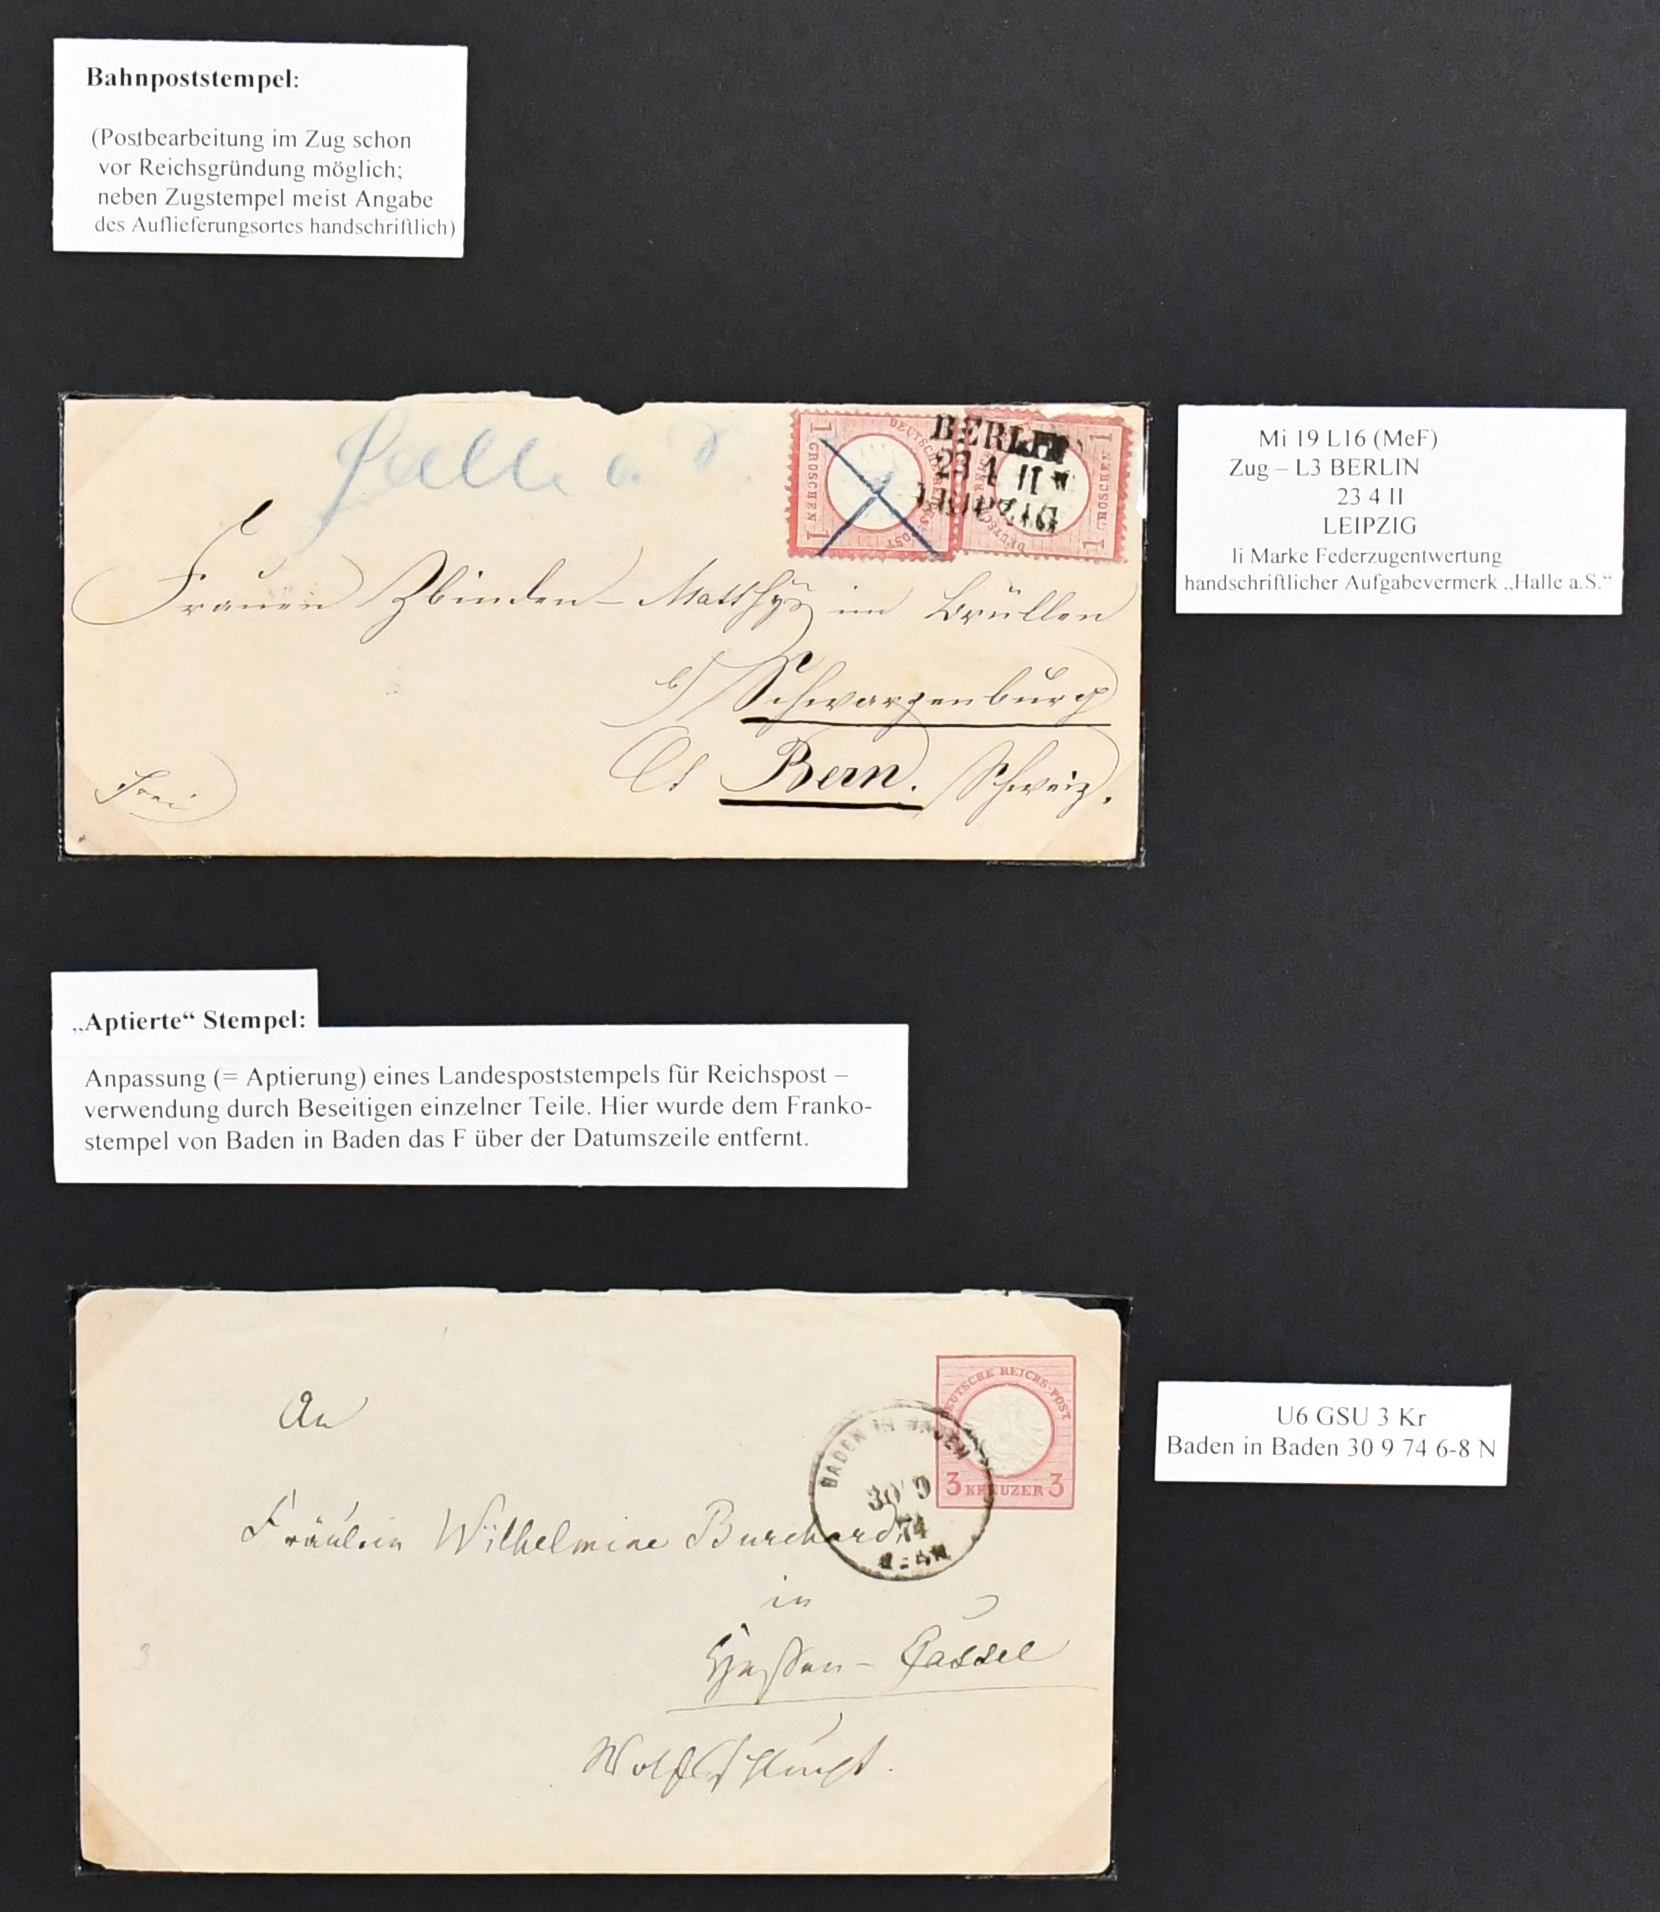 Bahnpoststempel:
(Postbearbeitung im Zug schon
vor Reichsgründung möglich;
neben Zugstempel meist Angabe
des Auflieferungsortes handschriftlich)
Halle a.
1 GROSCHEN 1
DEUTSCHE REICHS-POST
BERLIN
23 4 II
LEIPZIG
1 GROSCHEN 1
Mi 19 L16 (MeF)
Zug – L3 BERLIN
23 4 II
LEIPZIG
li Marke Federzugentwertung
handschriftlicher Aufgabevermerk „Halle a.S.“
Frauen Zbinden-Matthys im Brüllen
b/ Schwarzenburg
Ct Bern. Schweiz.
Frei
„Aptierte“ Stempel:
Anpassung (= Aptierung) eines Landespoststempels für Reichspost –
verwendung durch Beseitigen einzelner Teile. Hier wurde dem Franko-
stempel von Baden in Baden das F über der Datumszeile entfernt.
DEUTSCHE REICHS-POST
3 KREUZER 3
BADEN IN BADEN
30 9
74
6-8 N
U6 GSU 3 Kr
Baden in Baden 30 9 74 6-8 N
An
Fräulein Wilhelmine Burchardi
in
Hessen-Cassel
3